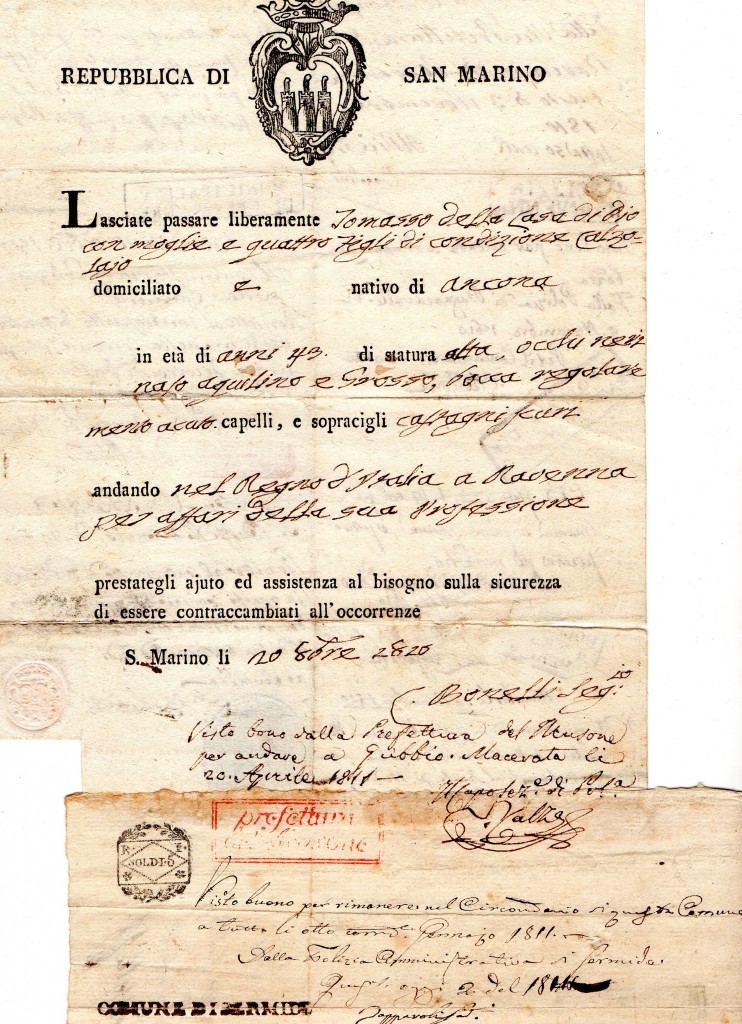 REPUBBLICA DI SAN MARINO
Lasciate passare liberamente Tomasso della Casa di Pio
con moglie e quattro figli di condizione Calzo-
lajo
domiciliato e nativo di Ancona
in età di anni 43. di statura alta, occhi neri
naso aquilino e Grosso, bocca regolare
mento acuto. capelli, e sopracigli castagni scuri
andando nel Regno d'Italia a Ravenna
per affari della sua Professione
prestategli ajuto ed assistenza al bisogno sulla sicurezza
di essere contraccambiati all'occorrenze
S. Marino li 20 8bre 1810
Bonelli Seg.rio
Visto bono dalla Prefettura del Musone
per andare a Gubbio. Macerata li
20. Aprile 1811 —
Il Caposez.e di Pol.a
prefettura
del Musone
R. I.
SOLDI 5
Visto buono per rimanere nel Circondario di questa Comune
a tutto li otto corrd. Gennajo 1811. —
Dalla Polizia Amministrativa di Sermide.
Questo oggi 2 del 1811
COMUNE DI SERMIDE